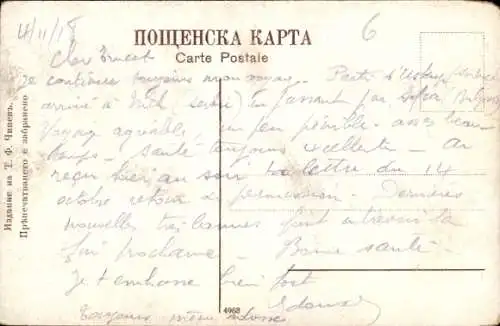 4/11/18
6
ПОЩЕНСКА КАРТА
Carte Postale
Cher Ernest
Je continue toujours mon voyage. Partis d'
arrivé à Nich (Serbie) en passant par Sofia
Voyage agréable, un peu pénible - assez beau
temps - Santé toujours excellente - ai
reçu hier au soir ta lettre du 14
octobre retour de permission. Dernières
nouvelles très bonnes font entrevoir la
fin prochaine - Bonne santé -
Je t'embrasse bien fort
Edouard
Toujours même adresse
4968
Издание на Т. Ф. Чипевъ.
Прѣпечатването е забранено